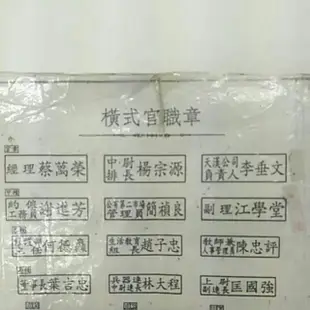 橫式官職章
經理蔡萬榮
中尉排長楊宗源
天漢公司負責人李垂文
約僱工務員謝進芳
公有第二市場管理員簡禎良
副理江學堂
何振鑫
生活教育組長趙子忠
教師兼人事管理員陳忠評
董事長葉宮忠
兵器連中尉副連長林大程
上尉副連長匡國強